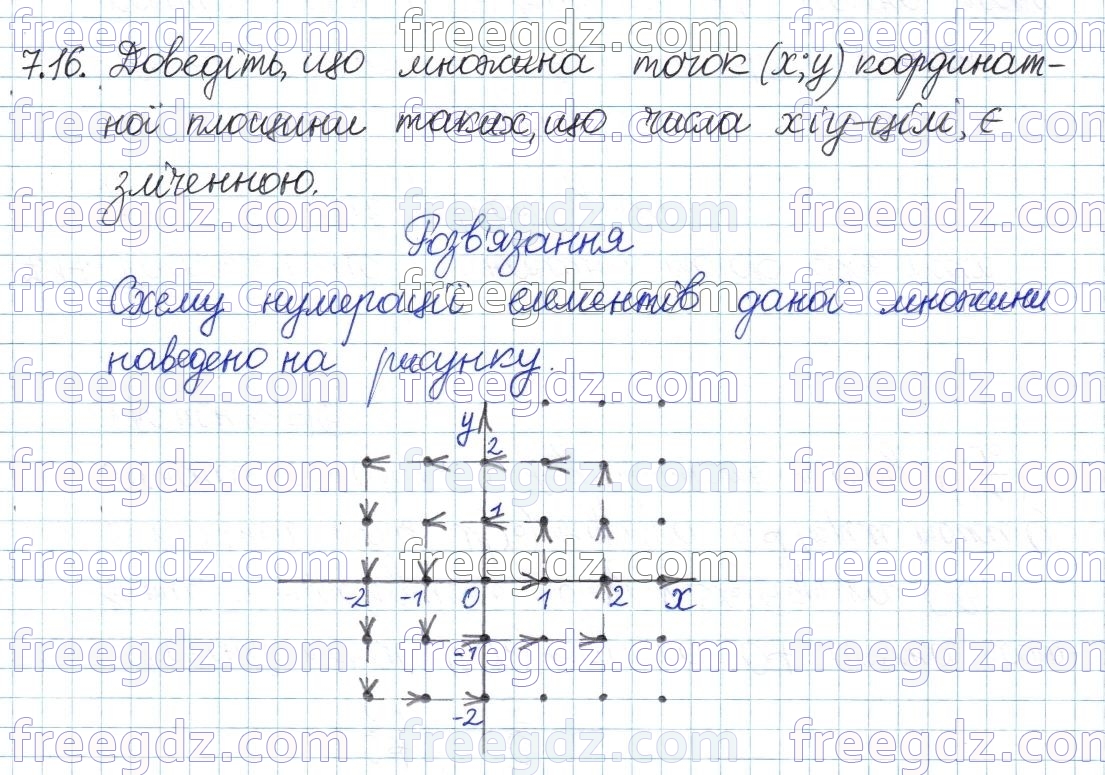 7.16. Доведіть, що множина точок (x; y) координат-
ної площини таких, що числа x і y – цілі, є
зліченною.
Розв'язання
Схему нумерації елементів даної множини
наведено на рисунку.
y
2
1
-2 -1 0 1 2 x
-1
-2
freegdz.com